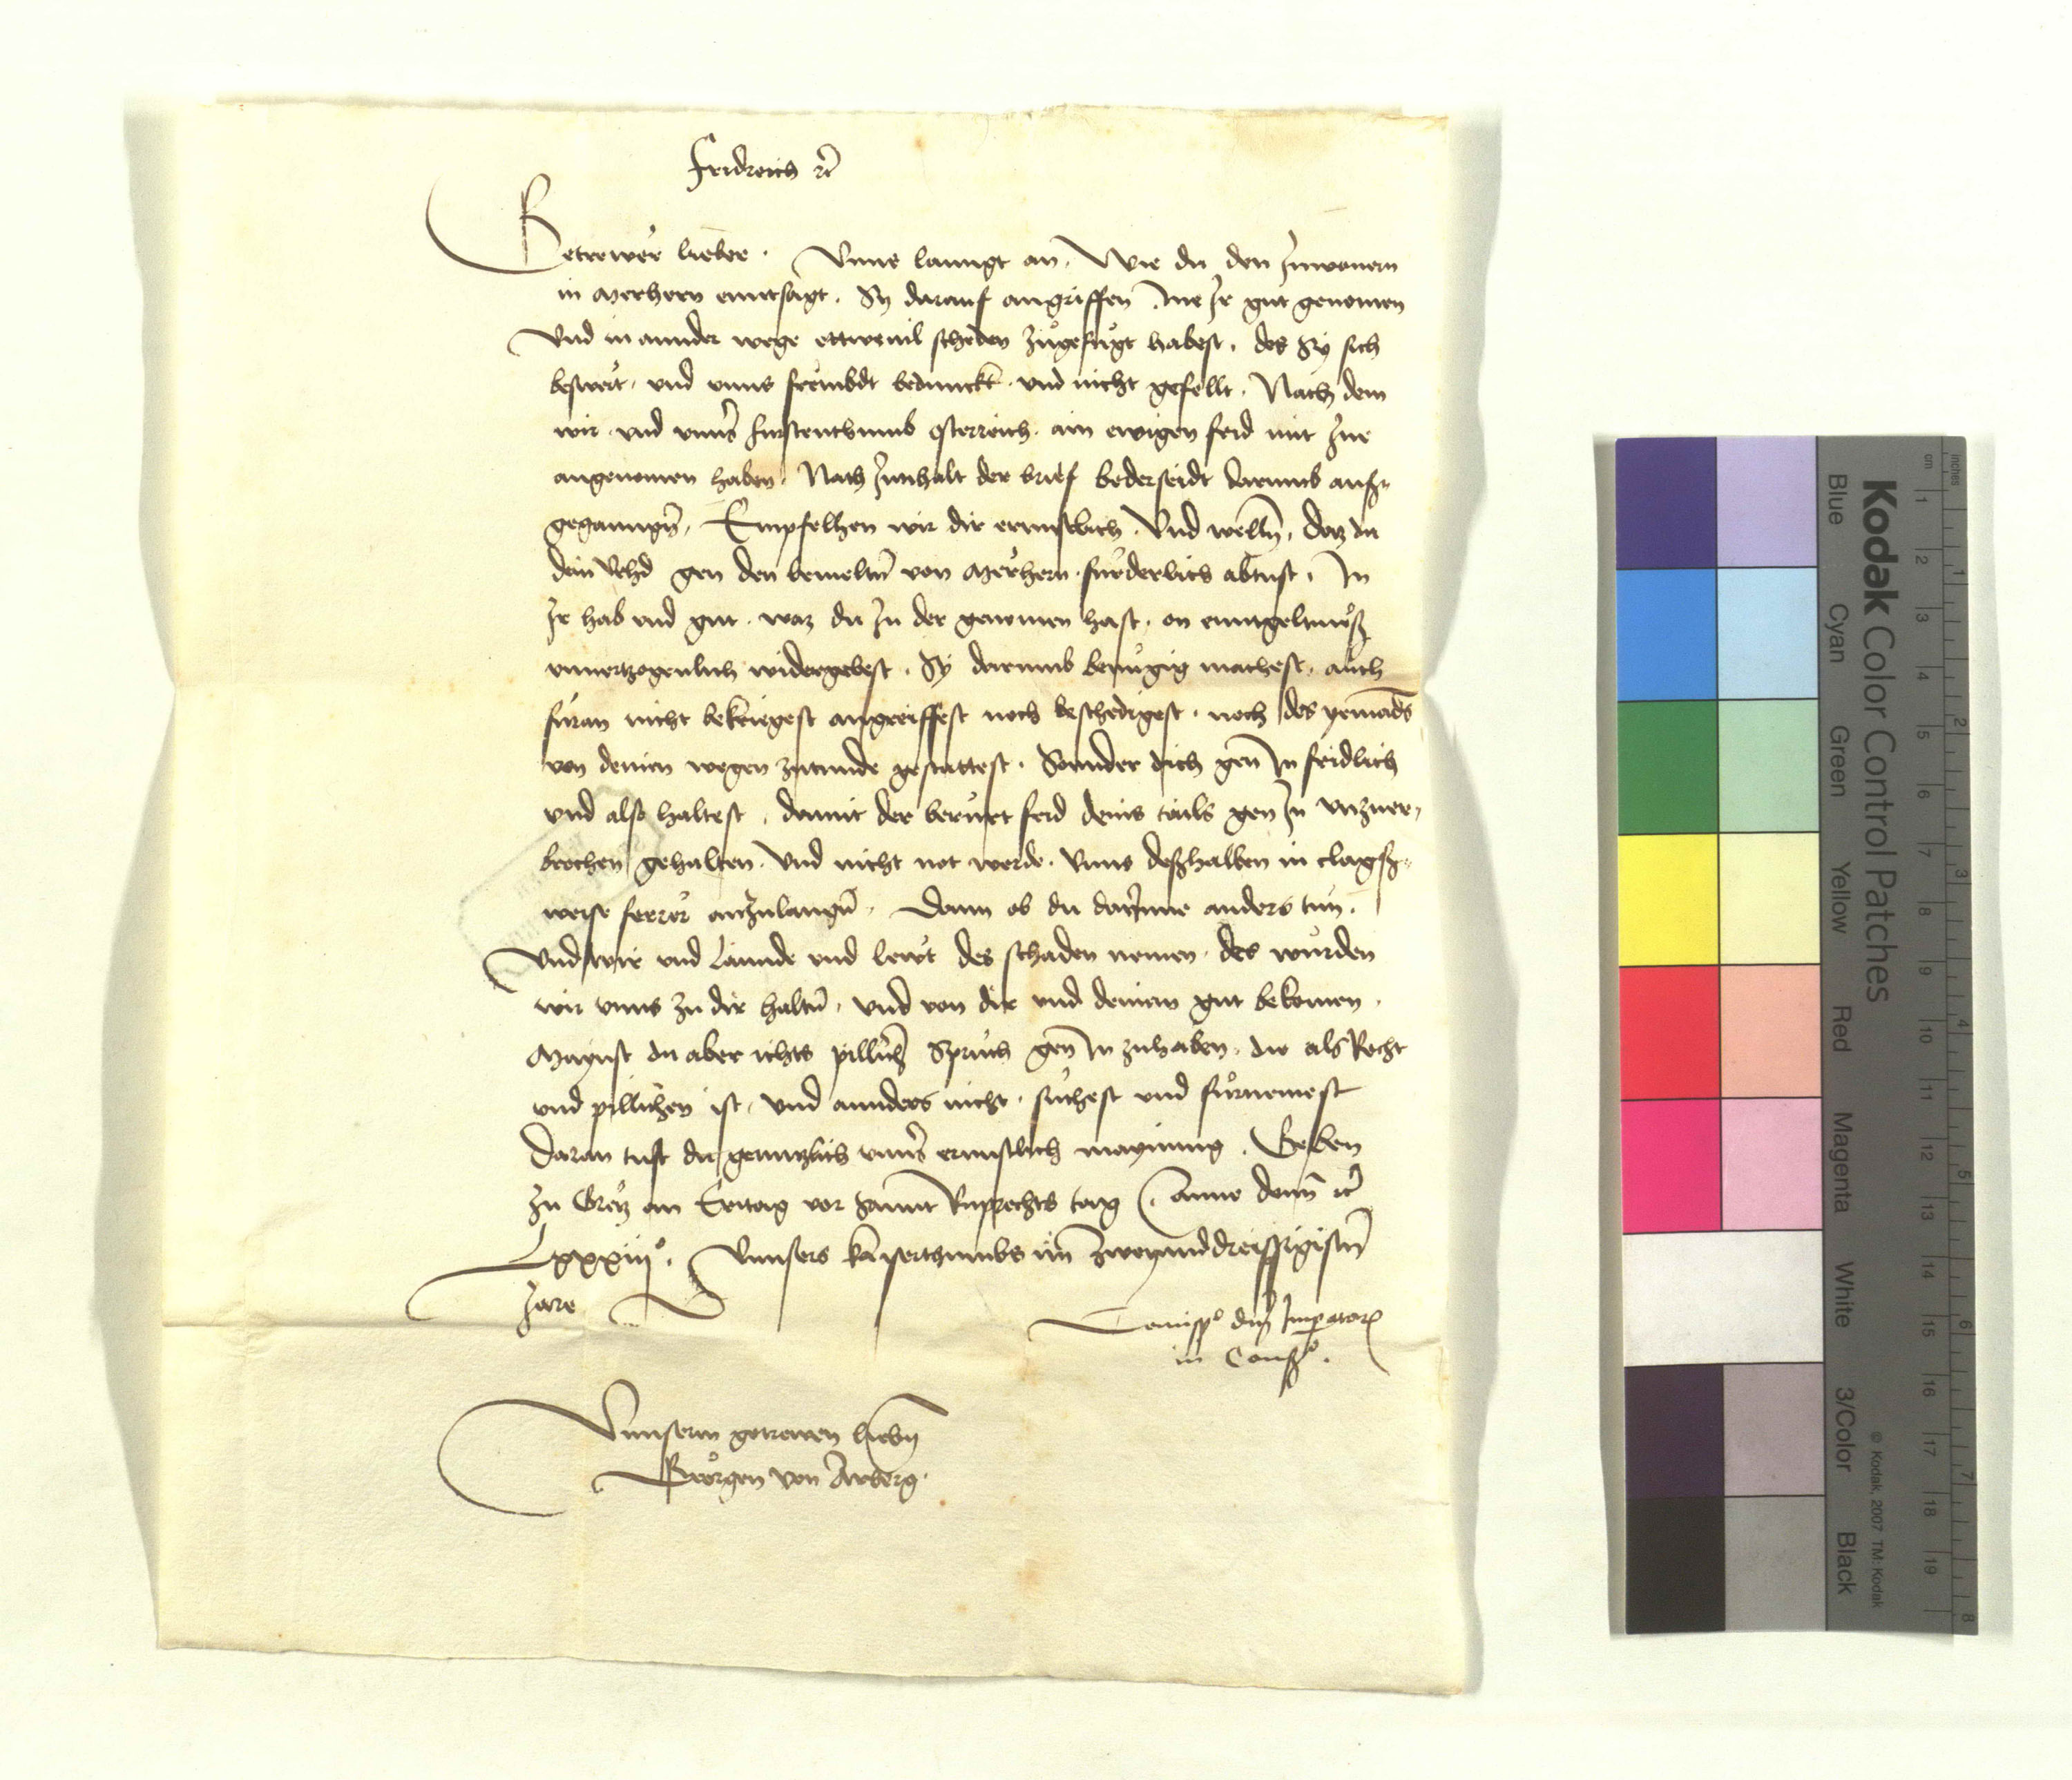 Fridreich rc̄
Getrewer lieber . Vnns lanngt an, Wie du den Inwonern
in Merhern enntsagt . Sy darauf angriffen . Ine Ir gut genomen
Vnd in annder wege ettweuil scheden zugefugt habest . des Sy sich
beswert . vnd vnns frembdt bedunckt vnd nicht gefellt . Nach dem
wir vnd vnnser furstenthumb Osterreich . ain ewigen frid mit Ine
angenomen haben . Nach Innhalt der brief bederseidt darumb ausz-
geganngen̄, Empfelhen wir dir ernnstlich . Vnd wellen̄, daz du
dein Vehd gen den bemeltn̄ von Merhern furderlich abtust . In
Ir hab vnd gut . waz du In der genomen hast . on enntgeltnusz
vnuertzogenlich widergebest . Sy darumb benugig machest . auch
furan nicht bekriegest angreiffest noch beschedigest . noch des yemands
von deinen wegen zutunde gestattest . Sonnder dich gen In fridlich
vnd also haltest . damit der berurt frid deins tails gen In vnzuer-
brochen gehalten . Vnd nicht not werde . Vnns deszhalben in clagsz-
weise ferrer anzulangn̄ . Dann ob du darInne anders tun .
Vnd wir vnd Lannde vnd lewt des schaden nemen . des wurden
wir vnns zu dir haltn̄ . vnd von dir vnd deinem gut bekomen .
Maynst du aber ichts pillich Spruch gen In zuhaben . die als Recht
vnd pillichen ist . Vnd annders nicht . suchest vnd furnemest
Daran tust du genntzlich vnnser ernnstlich maynung . Geben
zu Gretz an Eritag vor Sannt Ruprechts tag . Anno domī rc̄
Lxxxiijo . Vnnsers kaiserthumbs im Zwayunddreissigistn̄
Jare
Comisso dnj Imperatoris
in Consio .
Vnnserm getrewen liebn̄
Georgen von Arberg .
Kodak Color Control Patches
Blue Cyan Green Yellow Red Magenta White 3/Color Black
© Kodak, 2007 TM: Kodak
cm 1 2 3 4 5 6 7 8 9 10 11 12 13 14 15 16 17 18 19
inches 1 2 3 4 5 6 7 8